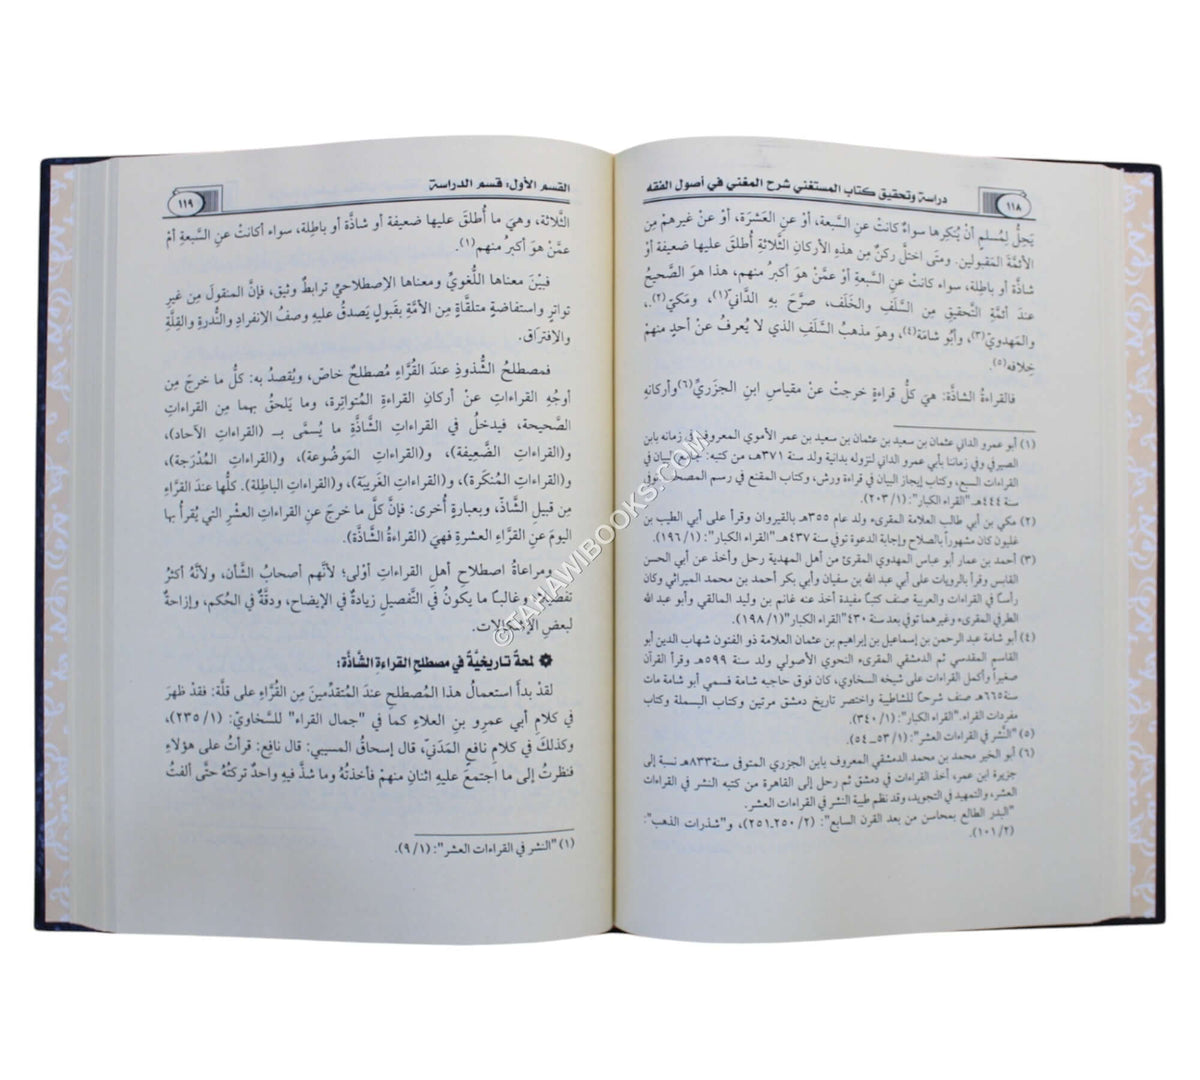 ١١٨
دراسة وتحقيق كتاب المستغني شرح المغني في أصول الفقه
يَحِلُّ لِمُسلمٍ أنْ يُنْكِرها سواءٌ كانتْ عنِ السَّبعة، أوْ عنِ العَشرَة، أوْ عنْ غيرِهمْ مِن
الأئمَّة المَقبولين. ومتَى اختلَّ ركنٌ مِن هذِه الأركانِ الثَّلاثة أُطلقَ عليها ضعيفة أو
شاذَّة أو باطِلة، سواء كانتْ عنِ السَّبعةِ أوْ عمَّنْ هوَ أكبرُ منهم، هذا هوَ الصَّحيحُ
عندَ أئمَّةِ التَّحقيقِ مِن السَّلَفِ والخَلَف، صرَّحَ بهِ الدَّانيّ(١)، ومَكيّ(٢)،
والمَهدويّ(٣)، وأبُو شامَة(٤)، وهوَ مذهبُ السَّلَفِ الذي لا يُعرفُ عنْ أحدٍ منهمْ
خِلافه(٥).
فالقراءةُ الشاذَّة: هيَ كلُّ قراءةٍ خرجتْ عنْ مقياسِ ابنِ الجزَريِّ(٦) وأركانهِ
(١) أبو عمرو الداني عثمان بن سعيد بن عثمان بن سعيد بن عمر الأموي المعروف في زمانه بابن
الصيرفي وفي زماننا بأبي عمرو الداني لنزوله بدانية ولد سنة ٣٧١هـ، من كتبه: جامع البيان في
القراءات السبع، وكتاب إيجاز البيان في قراءة ورش، وكتاب المقنع في رسم المصحف توفي
سنة ٤٤٤هـ "القراء الكبار" (١/ ٢٠٣).
(٢) مكي بن أبي طالب العلامة المقرىء ولد عام ٣٥٥هـ بالقيروان وقرأ على أبي الطيب بن
غلبون كان مشهوراً بالصلاح وإجابة الدعوة توفي سنة ٤٣٧هـ "القراء الكبار": (١/ ١٩٦).
(٣) أحمد بن عمار أبو عباس المهدوي المقرئ من أهل المهدية رحل وأخذ عن أبي الحسن
القابس وقرأ بالرويات على أبي عبد الله بن سفيان وأبي بكر أحمد بن محمد الميراثي وكان
رأساً في القراءات والعربية صنف كتباً مفيدة أخذ عنه غانم بن وليد المالقي وأبو عبد الله
الطرفي المقرىء وغيرهما توفي بعد سنة ٤٣٠ "القراء الكبار" (١/ ١٩٨).
(٤) أبو شامة عبد الرحمن بن إسماعيل بن إبراهيم بن عثمان العلامة ذو الفنون شهاب الدين أبو
القاسم المقدسي ثم الدمشقي المقرىء النحوي الأصولي ولد سنة ٥٩٩هـ وقرأ القرآن
صغيراً وأكمل القراءات على شيخه السخاوي، كان فوق حاجبه شامة فسمي أبو شامة مات
سنة ٦٦٥هـ صنف شرحاً للشاطبية واختصر تاريخ دمشق مرتين وكتاب البسملة وكتاب
مفردات القراء. "القراء الكبار": (١/ ٣٤٠).
(٥) "النَّشر في القراءات العشر": (١/ ٥٣ـ٥٤).
(٦) أبو الخير محمد بن محمد الدمشقي المعروف بابن الجزري المتوفى سنة ٨٣٣هـ نسبة إلى
جزيرة ابن عمر، أخذ القراءات في دمشق ثم رحل إلى القاهرة من كتبه النشر في القراءات
العشر، والتمهيد في التجويد، وقد نظم طيبة النشر في القراءات العشر.
"البدر الطالع بمحاسن من بعد القرن السابع": (٢/ ٢٥٠ـ٢٥١)، و"شذرات الذهب":
(٢/ ١٠١).
القسم الأول: قسم الدراسة
١١٩
الثَّلاثة، وهيَ ما أُطلقَ عليها ضعيفة أو شاذَّة أو باطِلة، سواء أكانتْ عنِ السَّبعةِ أمْ
عمَّنْ هوَ أكبرُ منهم(١).
فبيْنَ معناها اللُّغويِّ ومعناها الاِصطلاحيِّ ترابطٌ وثيق، فإنَّ المنقولَ مِن غيرِ
تواترٍ واستفاضةٍ متلقَّاةٍ مِن الأمَّةِ بقَبولٍ يَصدقُ عليهِ وصفُ الاِنفرادِ والنُّدرةِ والقِلَّةِ
والاِفتراق.
فمصطلحُ الشُّذوذِ عندَ القُرَّاءِ مُصطلحٌ خاصّ، ويُقصدُ به: كلُّ ما خرجَ مِن
أوجُهِ القراءاتِ عنْ أركانِ القراءةِ المُتواتِرة، وما يَلحقُ بهما مِن القراءاتِ
الصَّحيحة، فيدخلُ في القراءاتِ الشَّاذَّةِ ما يُسمَّى بــ (القراءاتِ الآحاد)،
و(القراءاتِ الضَّعيفة)، و(القراءاتِ المَوضُوعة)، و(القراءاتِ المُدْرَجة)،
و(القراءاتِ المُنكَرة)، و(القراءاتِ الغَريبَة)، و(القراءاتِ الباطِلة). كلُّها عندَ القرَّاءِ
مِن قبيلِ الشَّاذّ، وبعبارةٍ أُخرى: فإنَّ كلَّ ما خرجَ عنِ القراءاتِ العشْرِ التي يُقرأُ بها
اليومَ عنِ القرَّاءِ العشرةِ فهيَ (القراءةُ الشَّاذَّة).
ومراعاةُ اصطلاحِ أهلِ القراءاتِ أوْلى؛ لأنَّهم أصحابُ الشَّأن، ولأنَّهُ أكثرُ
تفصيلاً؛ وغالباً ما يكونُ في التَّفصيلِ زيادةٌ في الإيضاح، ودقَّةٌ في الحُكم، وإزاحةٌ
لبعضِ الإشكالات.
۞ لمحةٌ تاريخيَّةٌ في مصطلحِ القراءةِ الشَّاذَّة:
لقدْ بدأَ استعمالُ هذا المُصطلحِ عندَ المُتقدِّمينَ مِن القُرَّاءِ على قلَّة: فقدْ ظهرَ
في كلامِ أبي عمرِو بنِ العلاءِ كما في "جمال القراء" للسَّخاويّ: (١/ ٢٣٥)،
وكذلكَ في كلامِ نافعٍ المَدَنيّ، قال إسحاقُ المسيبي: قال نافع: قرأتُ على هؤلاءِ
فنظرتُ إلى ما اجتمعَ عليهِ اثنانِ منهمْ فأخذتُهُ وما شذَّ فيهِ واحدٌ تركتُهُ حتَّى ألفتُ
(١) "النشر في القراءات العشر": (١/ ٩).
©TAHAWIBOOKS.COM